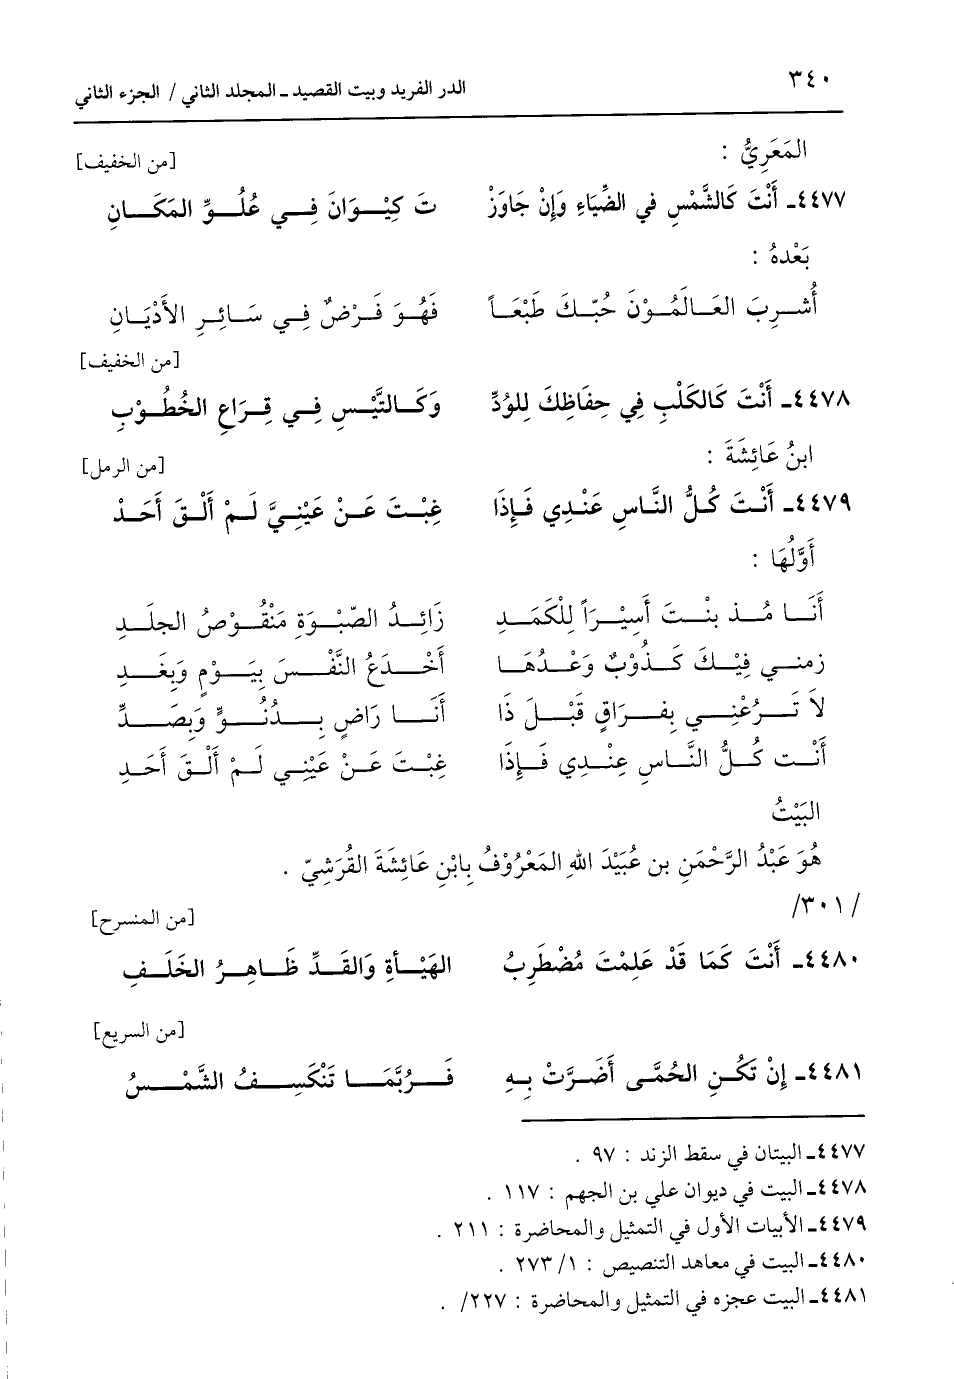 ٣٤٠
الدر الفريد وبيت القصيد ـ المجلد الثاني / الجزء الثاني
المَعَرِيُّ :
[من الخفيف]
٤٤٧٧ـ أَنْتَ كَالشَّمْسِ في الضِّيَاءِ وَإِنْ جَاوَزْ تَ كِيْوَانَ فِي عُلُوِّ المَكَانِ
بَعْدهُ :
أُشرِبَ العَالَمُوْنَ حُبّكَ طَبْعَاً فَهُوَ فَرْضٌ فِي سَائِرِ الأَدْيَانِ
[من الخفيف]
٤٤٧٨ـ أَنْتَ كَالكَلْبِ فِي حِفَاظِكَ لِلوُدِّ وَكَالتَّيْسِ فِي قِرَاعِ الخُطُوْبِ
ابنُ عَائِشَةَ :
[من الرمل]
٤٤٧٩ـ أَنْتَ كُلُّ النَّاسِ عَنْدِي فَإِذَا غِبْتَ عَنْ عَيْنِيَّ لَمْ أَلْقَ أَحَدْ
أَوَّلُهَا :
أَنَا مُذ بنْتَ أَسِيْرَاً لِلْكَمَدِ زَائِدُ الصّبْوَةِ مَنْقُوْصُ الجلَدِ
زمني فِيْكَ كَذُوْبٌ وَعْدُهَا أَخْدَعُ النَّفْسَ بِيَوْمٍ وَبِغَدِ
لاَ تَرُعْنِي بِفرَاقٍ قَبْلَ ذَا أَنَا رَاضٍ بِدُنُوٍّ وَبِصَدِّ
أَنْت كُلُّ النَّاسِ عِنْدِي فَإِذَا غِبْتَ عَنْ عَيْنِي لَمْ أَلْقَ أَحَدِ
البَيْتُ
هُوَ عَبْدُ الرَّحْمَنِ بن عُبَيْدَ اللهِ المَعْرُوْفُ بِابْنِ عَائِشَةَ القُرَشِيّ .
/٣٠١/
[من المنسرح]
٤٤٨٠ـ أَنْتَ كَمَا قَدْ عَلِمْتَ مُضْطَرِبُ الهَيْأَةِ وَالقَدِّ ظَاهِرُ الخَلَفِ
[من السريع]
٤٤٨١ـ إِنْ تَكُنِ الحُمَّى أَضَرَّتْ بِهِ فَرُبَّمَا تَنْكَسِفُ الشَّمْسُ
٤٤٧٧ـ البيتان في سقط الزند : ٩٧ .
٤٤٧٨ـ البيت في ديوان علي بن الجهم : ١١٧ .
٤٤٧٩ـ الأبيات الأول في التمثيل والمحاضرة : ٢١١ .
٤٤٨٠ـ البيت في معاهد التنصيص : ١/ ٢٧٣ .
٤٤٨١ـ البيت عجزه في التمثيل والمحاضرة : ٢٢٧/ .